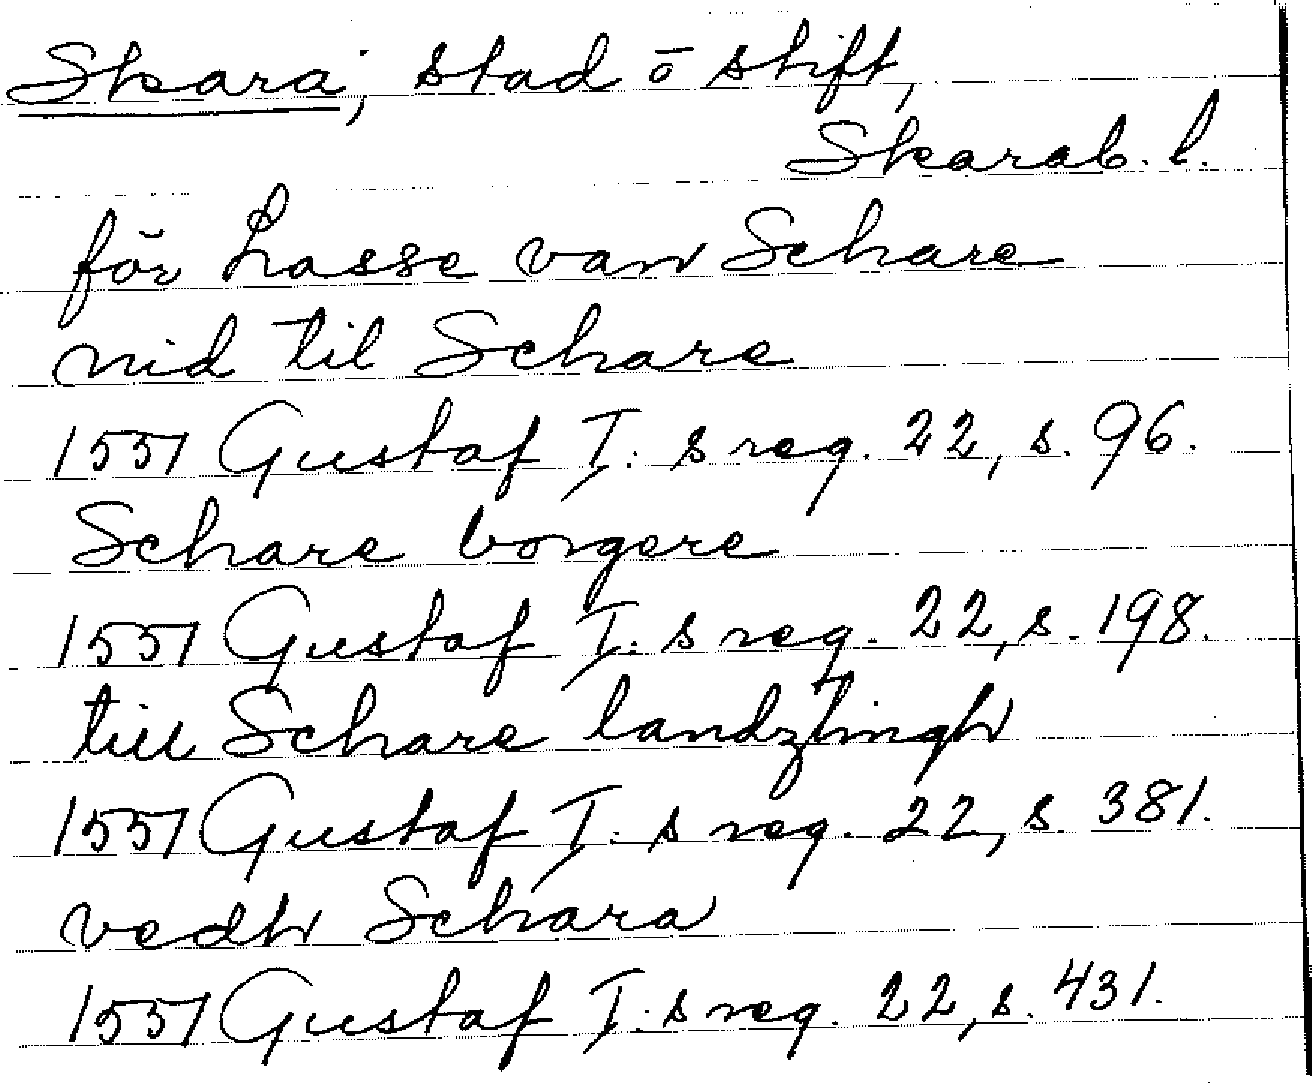 Skara, stad o stift,
Skarab. l.
för Lasse van Schare
nid til Schare
1551 Gustaf I:s reg. 22, s. 96.
Schare borgere
1551 Gustaf I:s reg. 22, s. 198.
till Schare landztingh
1551 Gustaf I:s reg. 22, s 381.
vedh Schara
1551 Gustaf I:s reg. 22, s. 431.